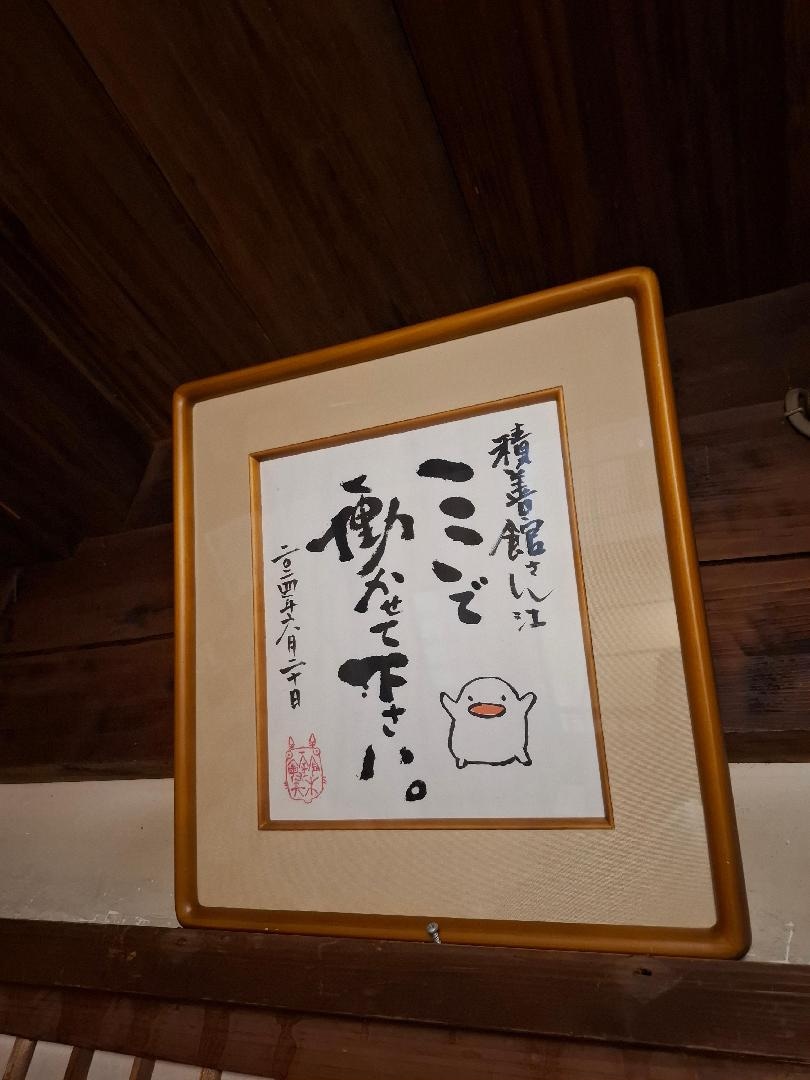 積善館さん江
ここで
働かせて下さい。
二〇二四年六月二十日
鈴木敏夫